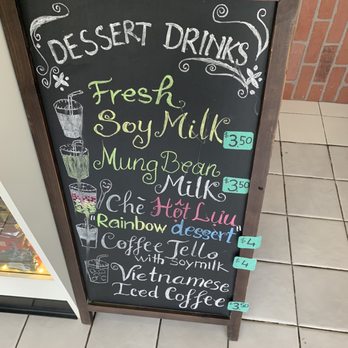 DESSERT DRINKS
Fresh
Soy Milk
$3.50
Mung Bean
Milk
$3.50
Chè Hột Lựu
"Rainbow dessert"
$4
Coffee Jello
with soymilk
$4
Vietnamese
Iced Coffee
$3.50